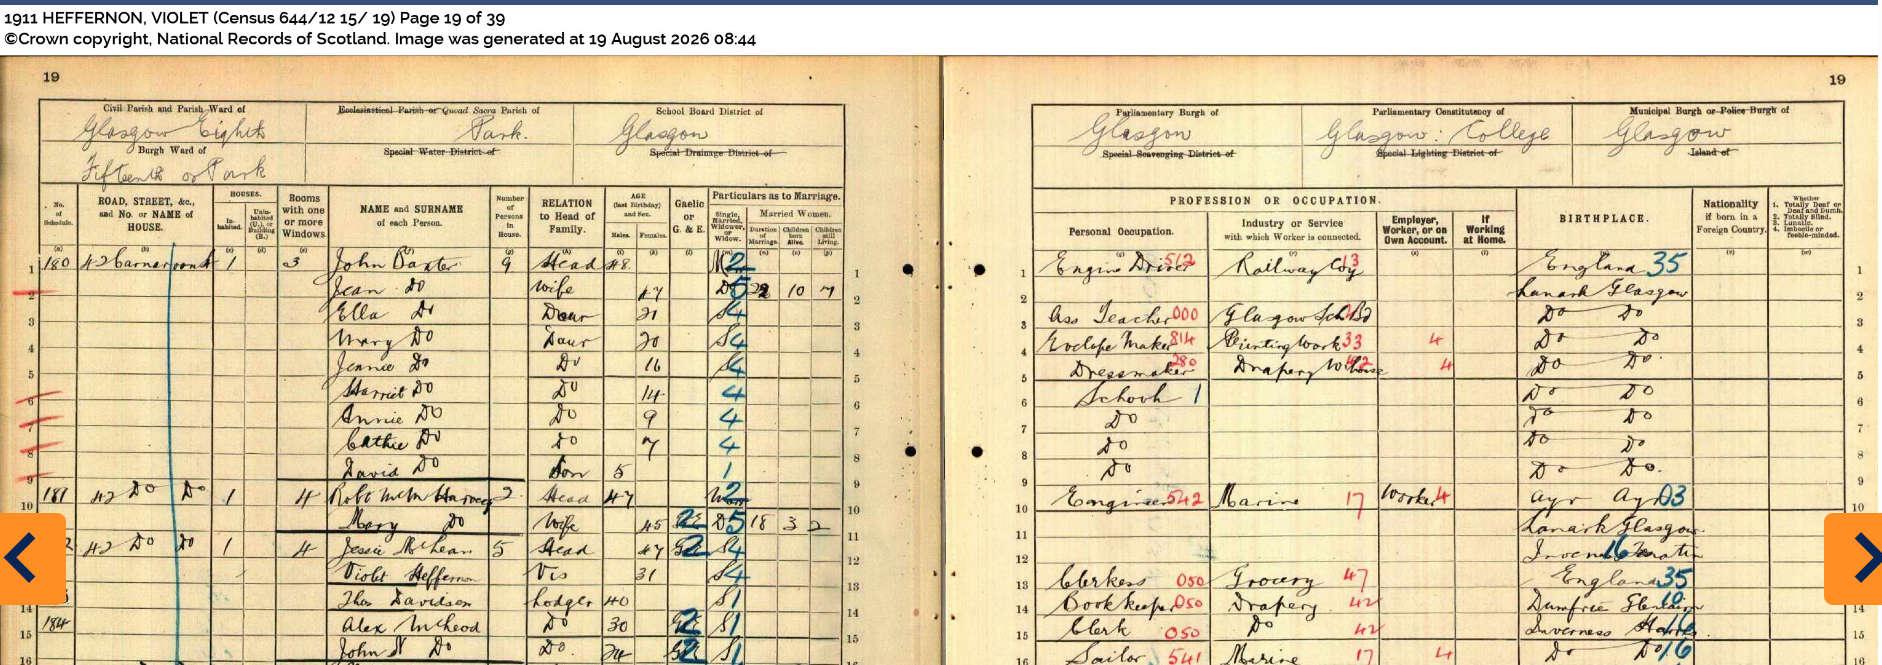 1911 HEFFERNON, VIOLET (Census 644/12 15/ 19) Page 19 of 39
©Crown copyright, National Records of Scotland. Image was generated at 19 August 2026 08:44
19
Civil Parish and Parish Ward of Ecclesiastical Parish or Quoad Sacra Parish of School Board District of
Glasgow Eighth Park. Glasgow
Burgh Ward of Special Water District of Special Drainage District of
Fifteenth or Park
No. of Schedule. ROAD, STREET, &c., and No. or NAME of HOUSE. HOUSES. In-habited. Unin-habited (U.), or Building (B.) Rooms with one or more Windows NAME and SURNAME of each Person. Number of Persons in House. RELATION to Head of Family. AGE (last Birthday) and Sex. Males. Females. Gaelic or G. & E. Particulars as to Marriage. Single, Married, Widower, or Widow. Married Women. Duration of Marriage. Children born Alive. Children still Living.
1 180 42 1 3 John Baxter 9 Head 48 2 1
2 Jean Do Wife 47 D 5 22 10 7 2
3 Ella Do Daur 21 S 4 3
4 Mary Do Daur 20 S 4 4
5 Jeanie Do Do 16 S 4 5
6 Harriet Do Do 14 4 6
7 Annie Do Do 9 4 7
8 Cathie Do Do 7 4 8
9 David Do Son 5 1 9
10 181 42 Do Do 1 4 Robt 2 Head 47 2 10
11 Mary Do Wife 45 2 D 5 18 3 2 11
12 42 Do Do 1 4 Jessie McLean 5 Head 47 2 S 4 12
Violet Heffernon Vis 31 S 4
14 Thos Davidson Lodger 40 S 1 14
15 184 Alex McLeod Do 30 2 S 1 15
16 John N Do Do 24 2 S 1
19
Parliamentary Burgh of Parliamentary Constituency of Municipal Burgh or Police Burgh of
Glasgow Glasgow: College Glasgow
Special Scavenging District of Special Lighting District of Island of
PROFESSION OR OCCUPATION. BIRTHPLACE. Nationality if born in a Foreign Country. Whether 1. Totally Deaf or Deaf and Dumb. 2. Totally Blind. 3. Lunatic. 4. Imbecile or feeble-minded.
Personal Occupation. Industry or Service with which Worker is connected. Employer, Worker, or on Own Account. If Working at Home.
1 Engine Driver 512 Railway Coy 13 England 35 1
2 Lanark Glasgow 2
3 Ass Teacher 000 Glasgow Sch Bd Do Do 3
4 Envelope Maker 814 Printing Work 33 4 Do Do 4
5 Dressmaker 280 Drapery 4 Do Do 5
6 School 1 Do Do 6
7 Do Do Do 7
8 Do Do Do 8
9 Do Do Do. 9
10 Engineer 542 Marine 17 Worker 4 Ayr Ayr 03 10
11 Lanark Glasgow 11
12 16 12
13 Clerkess 050 Grocery 47 England 35 13
14 Book keeper 050 Drapery 42 Dumfries 10 14
15 Clerk 050 Do 42 Inverness Harris 16 15
16 Sailor 541 Marine 17 4 Do Do 16